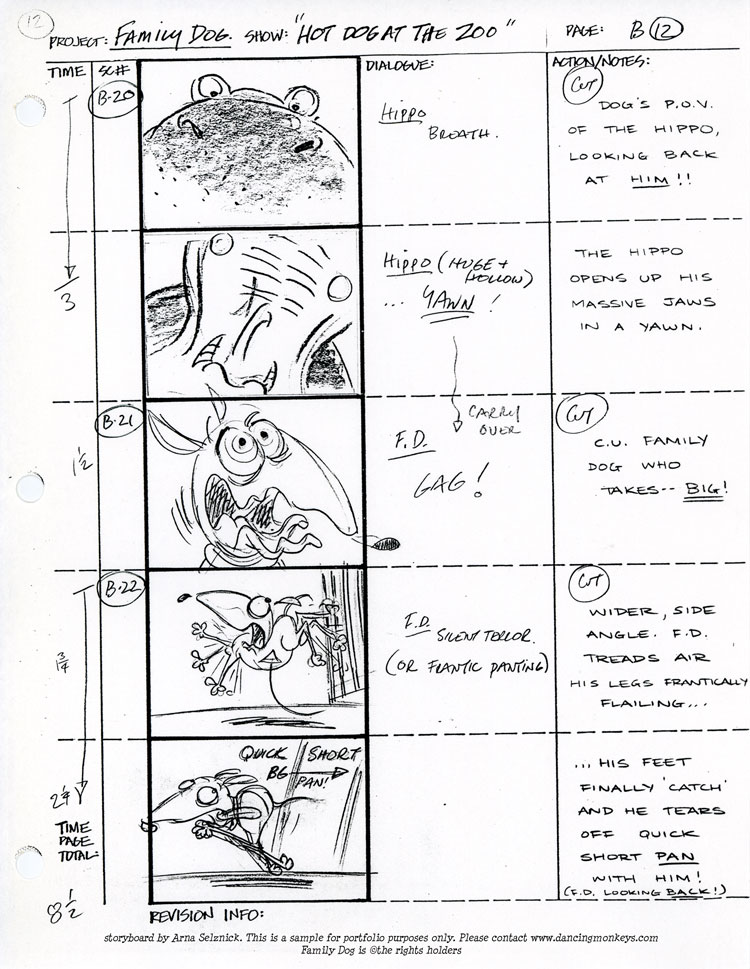 12
PROJECT: FAMILY DOG. SHOW: "HOT DOG AT THE ZOO" PAGE: B 12
TIME SC# DIALOGUE: ACTION/NOTES:
B-20
HIPPO
BREATH.
CUT
DOG'S P.O.V.
OF THE HIPPO,
LOOKING BACK
AT HIM!!
3
HIPPO (HUGE +
HOLLOW)
... YAWN!
THE HIPPO
OPENS UP HIS
MASSIVE JAWS
IN A YAWN.
CARRY
OVER
B-21
1 1/2
F.D.
GAG!
CUT
C.U. FAMILY
DOG WHO
TAKES-- BIG!
B-22
3/4
F.D. SILENT TERROR.
(OR FRANTIC PANTING)
CUT
WIDER, SIDE
ANGLE. F.D.
TREADS AIR
HIS LEGS FRANTICALLY
FLAILING...
QUICK SHORT
BG PAN!
... HIS FEET
FINALLY 'CATCH'
AND HE TEARS
OFF QUICK
SHORT PAN
WITH HIM!
(F.D. LOOKING BACK!)
TIME
PAGE
TOTAL:
8 1/2
REVISION INFO:
storyboard by Arna Selznick. This is a sample for portfolio purposes only. Please contact www.dancingmonkeys.com
Family Dog is ©the rights holders